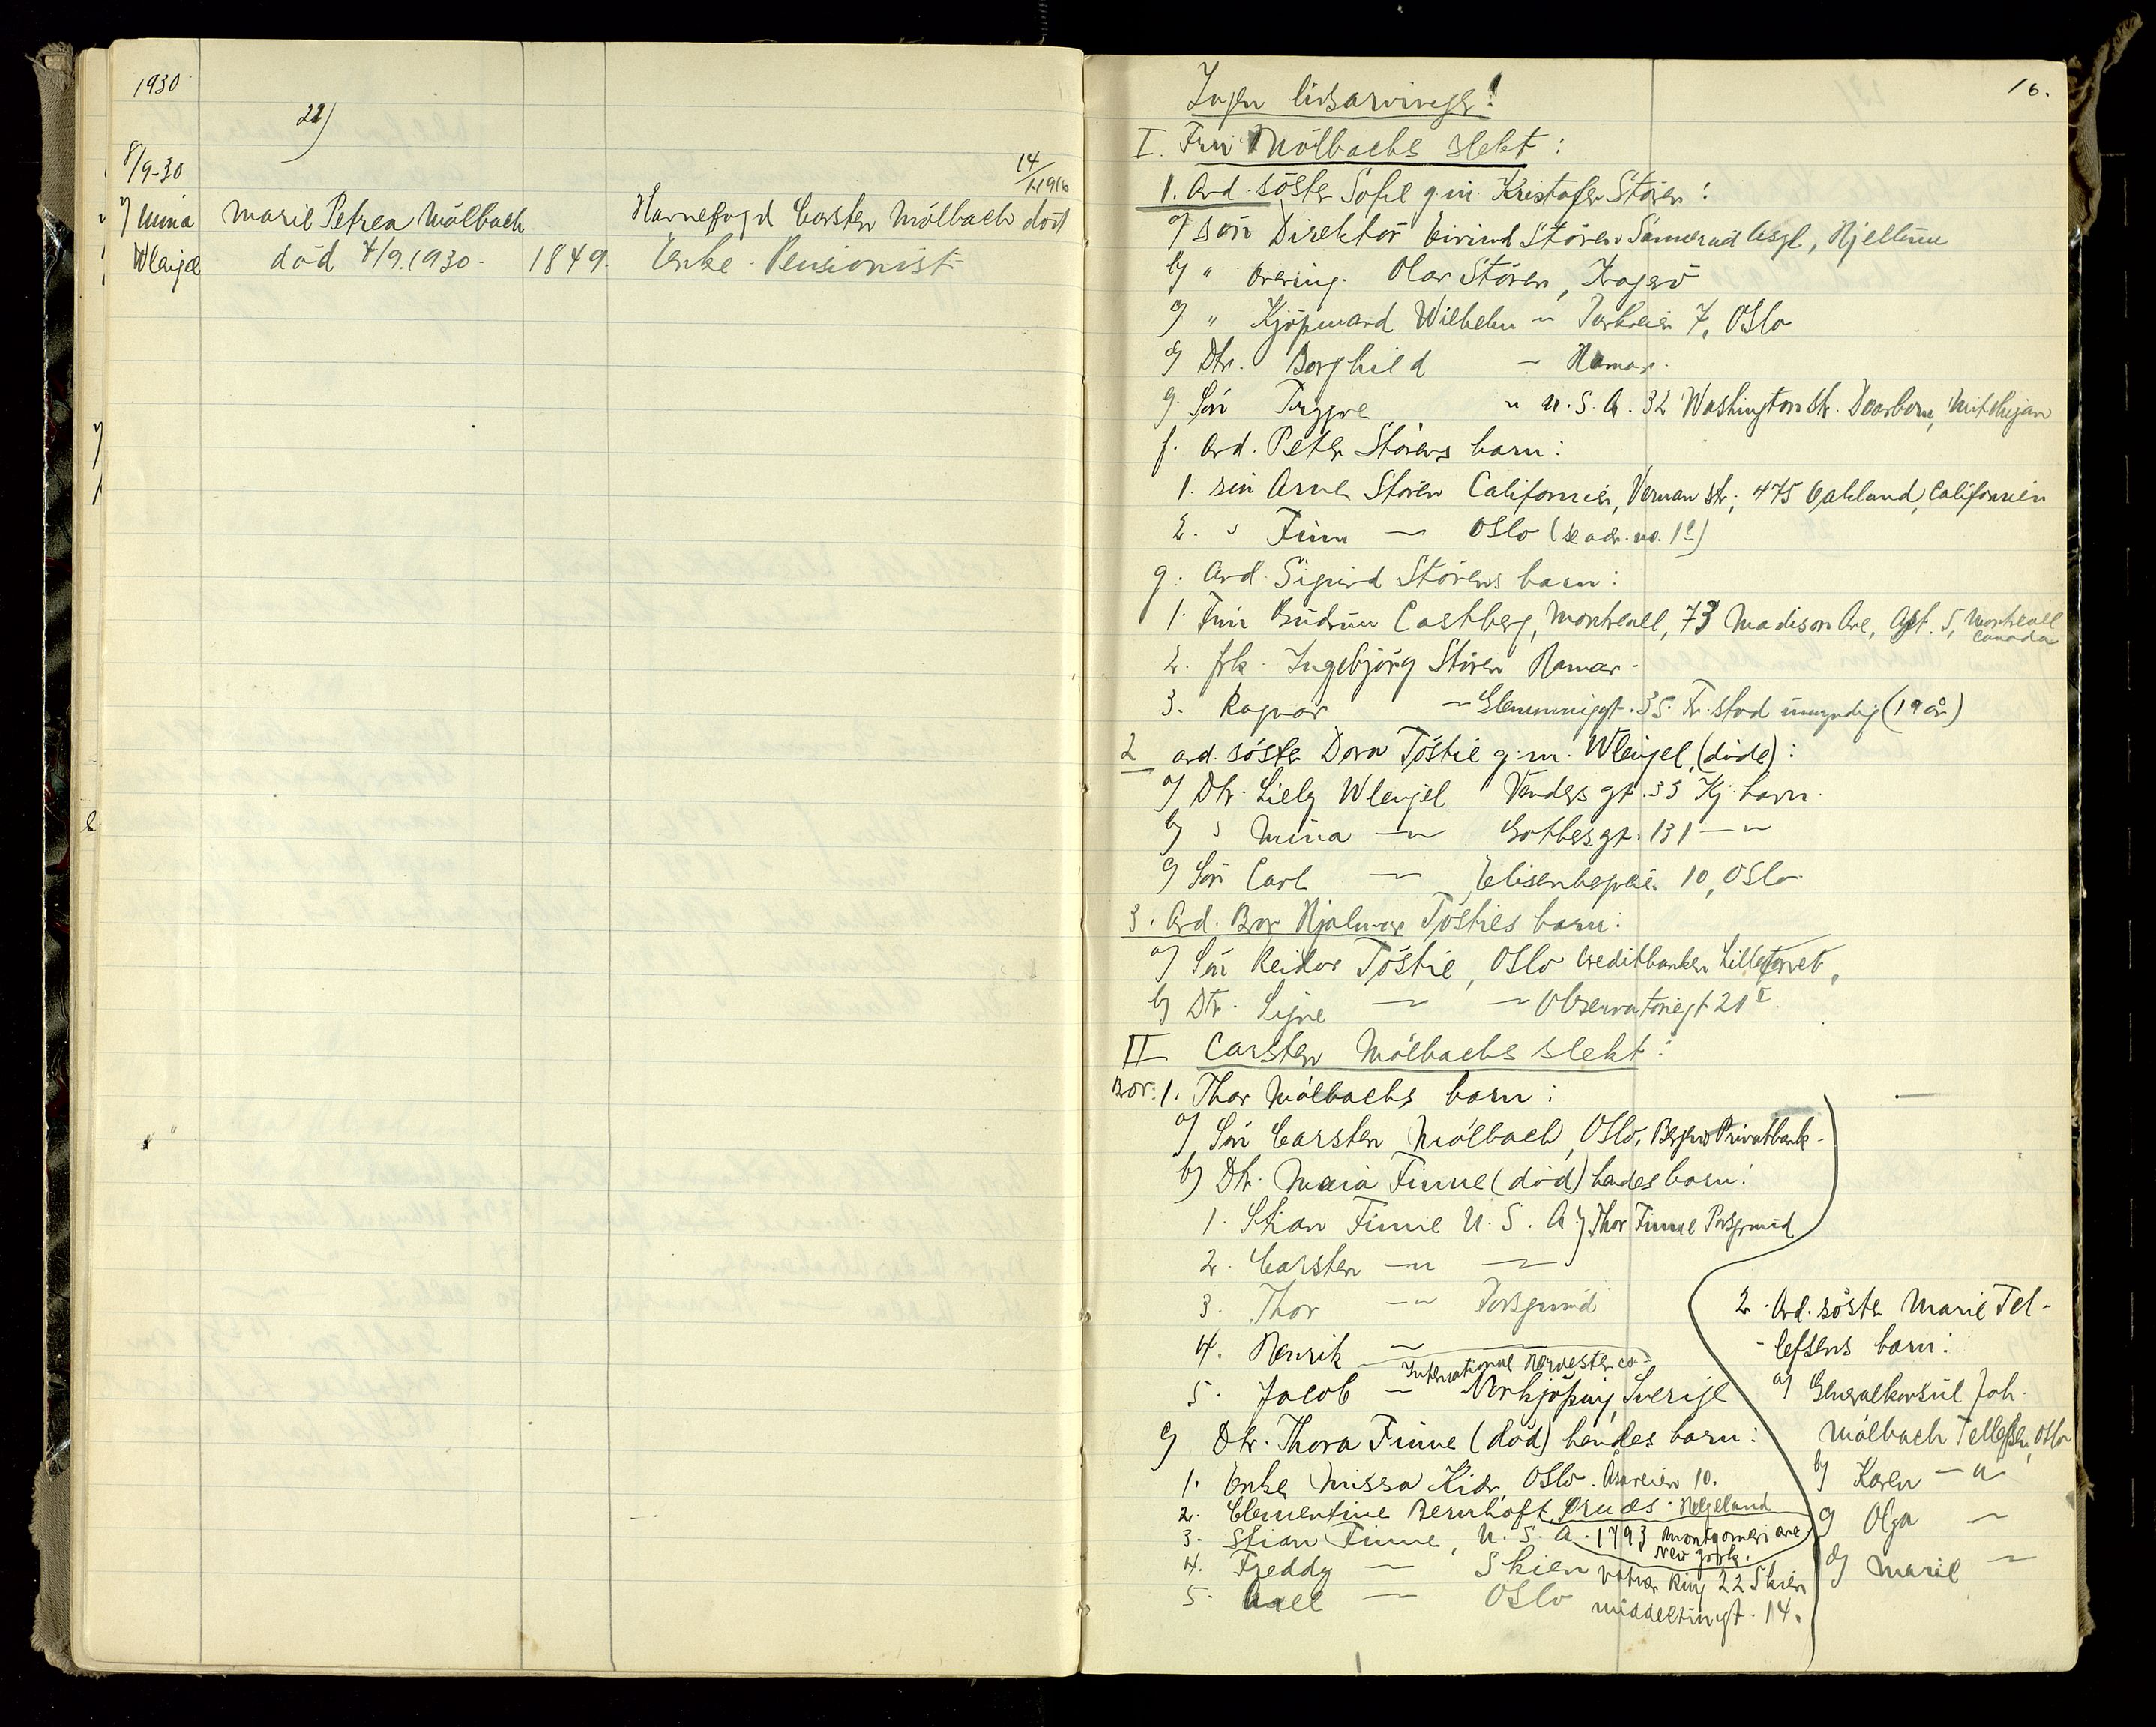 1930
22)
8/9-30
Mina
Wleügel
Marie Petrea Mölbach
död 4/9.1930.
1849.
14/1 1916
Havnefogd Carsten Mölbach död
Enke - Pensionist
16.
Ingen livsarvinger!
I. Fru Mölbachs slekt:
1. Avd. söster Sofie g.m. Kristofer Stören:
a) sön Direktör Eivind Stören Sanerud Asyl, Hjellum
b) " Oering. Olav Stören, Kragerö
c) " Kjöpmand Wilhelm — 7, Oslo
d) Dtr. Borghild — Hamar.
e) Sön Trygve " U.S.A. 32 Washington Str. Dearborn, Mitchigan
f. Avd. Peter Störens barn:
1. sön Arne Stören Californien, Vernan Str; 475 Oakland, Californien
2. " Finn — Oslo (se adr. no. 1c)
g. Avd. Sigurd Störens barn:
1. Frü Gudrun Castberg, Montreall, 73 Madison Ave, Apt. 5, Montreall Canada
2. frk. Ingebjörg Stören Hamar.
3. Ragnar — Glemmingt. 35 Fr.stad ümyndig (19 år)
2 avd. söster Dora Töstie g.m. Wleügel, (döde):
a) Dtr. Lielly Wleügel Vendersgt. 33 Kj.havn.
b) " Mina —"— Gothersgt. 131 —"—
c) Sön Carl — Elisenbergveien 10, Oslo
3. Avd. Bror Hjalmar Tösties barn:
a) Sön Reidar Töstie, Oslo Creditbanken Lilletorvet,
b) Dtr. Signe — — Observatoriegt 21 I
II Carsten Mölbachs slekt:
Bror: 1. Thor Mölbachs barn:
a) Sön Carsten Mölbach, Oslo, Bergens Privatbank.
b) Dtr. Maia Finne (död) hendes barn:
1. Stian Finne U.S.A. Thor Finne Porsgrund
2. Carsten —"— —
3. Thor —"— Porsgrund
4. Henrik — —
International Harvester co
5. Jacob — Norkjöping, Sverige
c) Dtr. Thora Finne (död) hendes barn:
1. Enke Missa Kiær, Oslo. Åsaveien 10.
2. Clementine Bernhoft, Brudes. Helgeland
3. Stian Finne, U.S.A. 1793 Montgomeri ave New York.
4. Freddy — Skien Ring 22 Skien
5. Axel — Oslo Middeltünsgt. 14.
2. Avd. söster Marie Tel-
-lefsens barn:
a) Generalkonsül Joh.
Mölbach Tellefsen, Oslo
b) Karen —"—
c) Olga —
d) Marie —